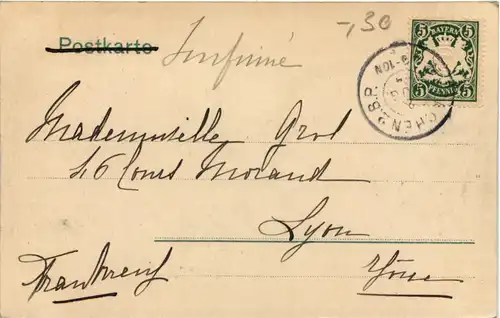 -,30
Postkarte Imprimé
BAYERN
5 5
5 PFENNIG 5
CHEN 2.B.P. 9-10N
Mademoiselle Grod
46 Cours Morand
Lyon
Frankreich Rhône